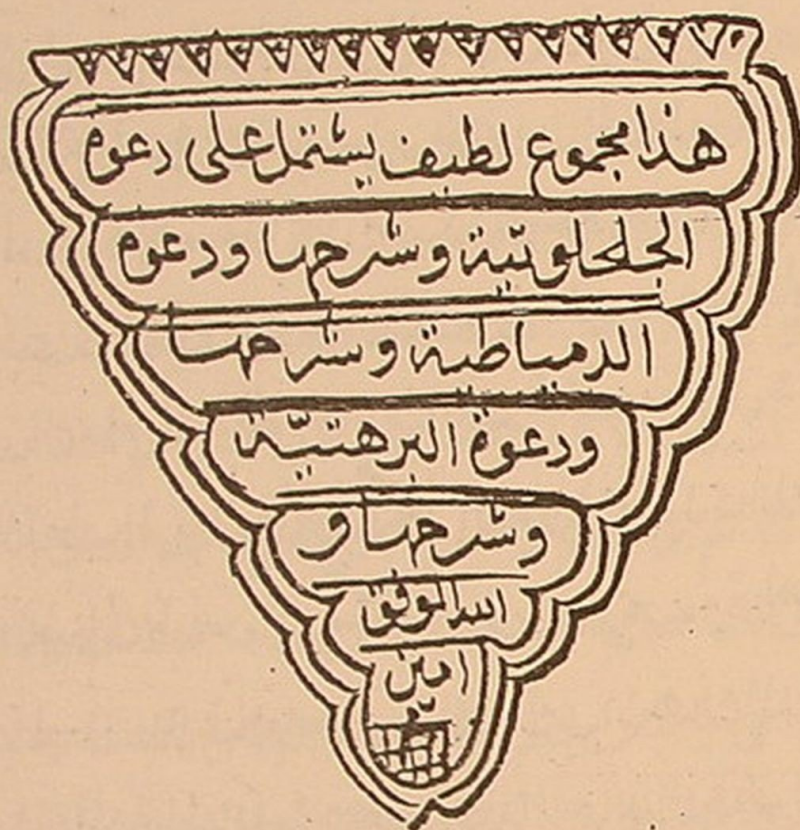 هذا مجموع لطيف يشتمل على دعوة
الجلجلوتية وشرحها ودعوة
الدمياطية وشرحها
ودعوة البرهتيّة
وشرحها و
الله الموفق
امين